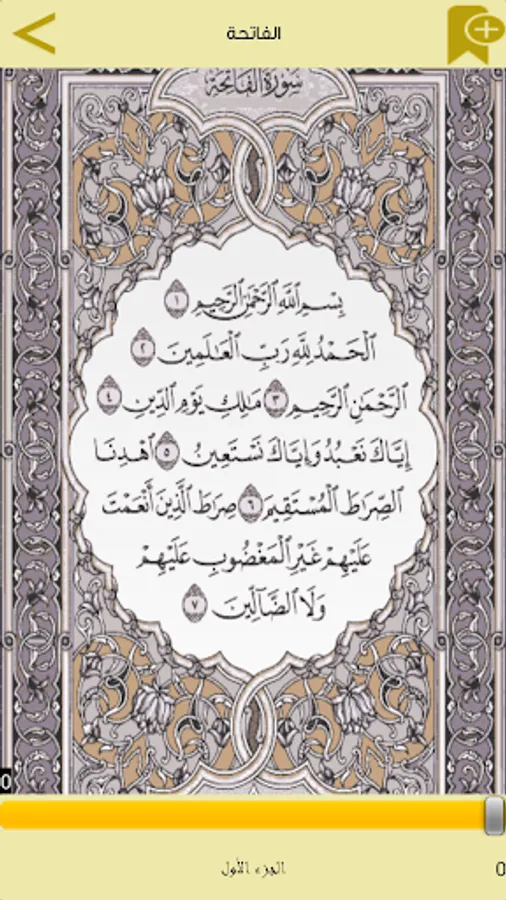 الفاتحة
سُورَةُ الفَاتِحَةِ
بِسْمِ ٱللَّهِ ٱلرَّحْمَٰنِ ٱلرَّحِيمِ ١
ٱلْحَمْدُ لِلَّهِ رَبِّ ٱلْعَٰلَمِينَ ٢
ٱلرَّحْمَٰنِ ٱلرَّحِيمِ ٣ مَٰلِكِ يَوْمِ ٱلدِّينِ ٤
إِيَّاكَ نَعْبُدُ وَإِيَّاكَ نَسْتَعِينُ ٥ ٱهْدِنَا
ٱلصِّرَٰطَ ٱلْمُسْتَقِيمَ ٦ صِرَٰطَ ٱلَّذِينَ أَنْعَمْتَ
عَلَيْهِمْ غَيْرِ ٱلْمَغْضُوبِ عَلَيْهِمْ
وَلَا ٱلضَّآلِّينَ ٧
0
الجزء الأول
0